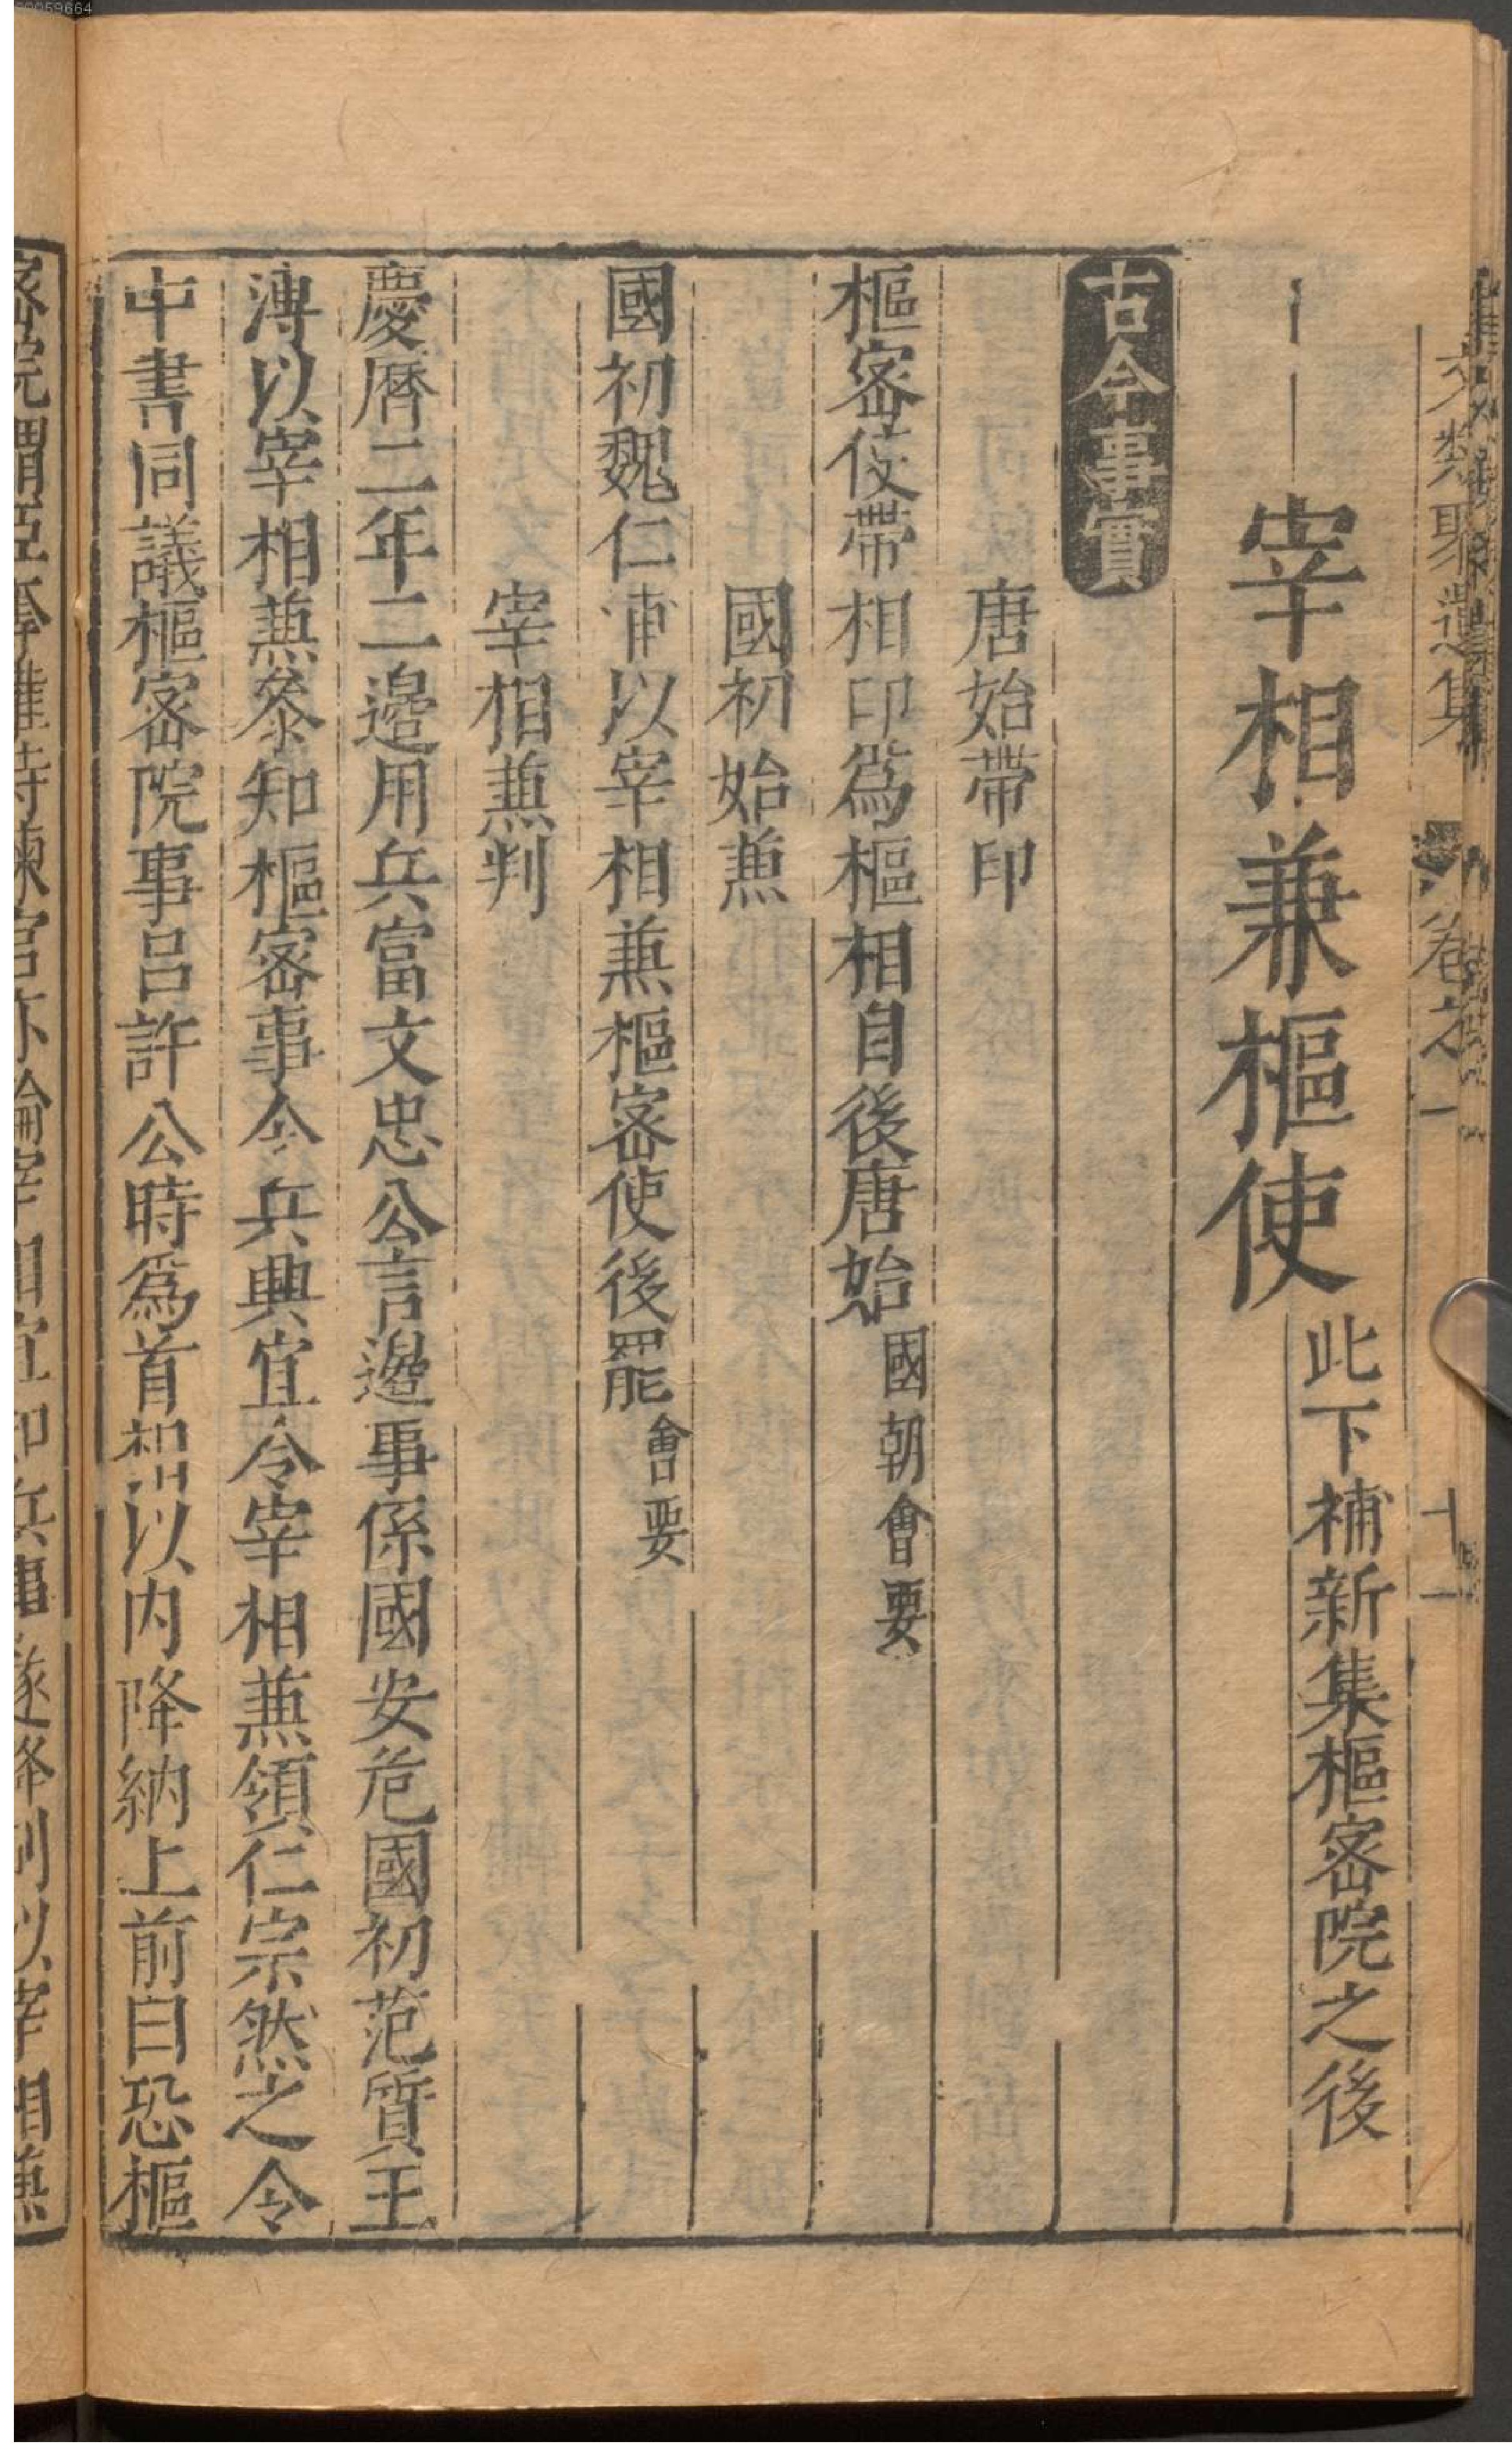 宰相兼樞使此下補新集樞密院之後
古今事實
唐始帶印
樞密使帶相印爲樞相自後唐始國朝會要
國初始兼
國初魏仁浦以宰相兼樞密使後罷會要
宰相兼判
慶曆二年二邊用兵富文忠公言邊事係國安危國初范質王
溥以宰相兼叅知樞密事今兵興宜令宰相兼領仁宗然之令
中書同議樞密院事呂許公時爲首相以内降納上前白恐樞